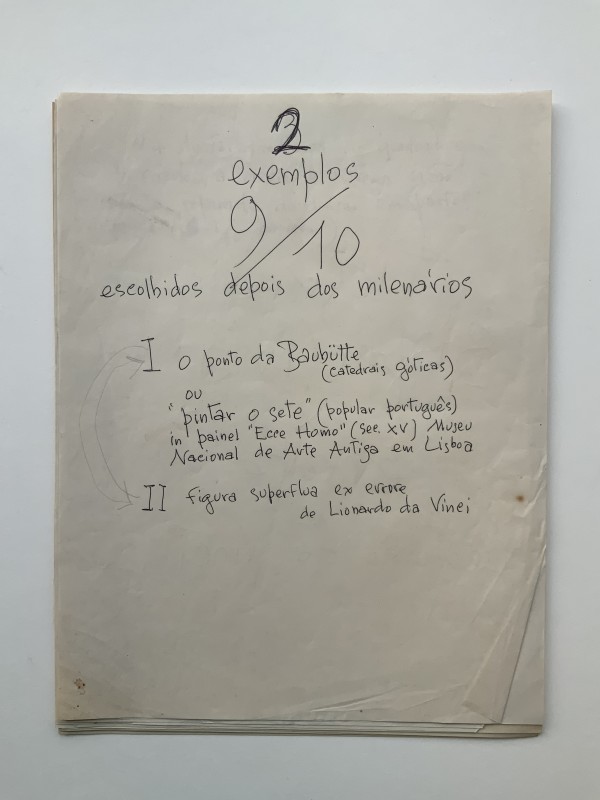 2
exemplos
9/10
escolhidos depois dos milenários
I o ponto da Bauhütte
(catedrais góticas)
ou
"pintar o sete" (popular português)
in painel "Ecce Homo" (sec. XV) Museu
Nacional de Arte Antiga em Lisboa
II figura superflua ex errore
de Lionardo da Vinci